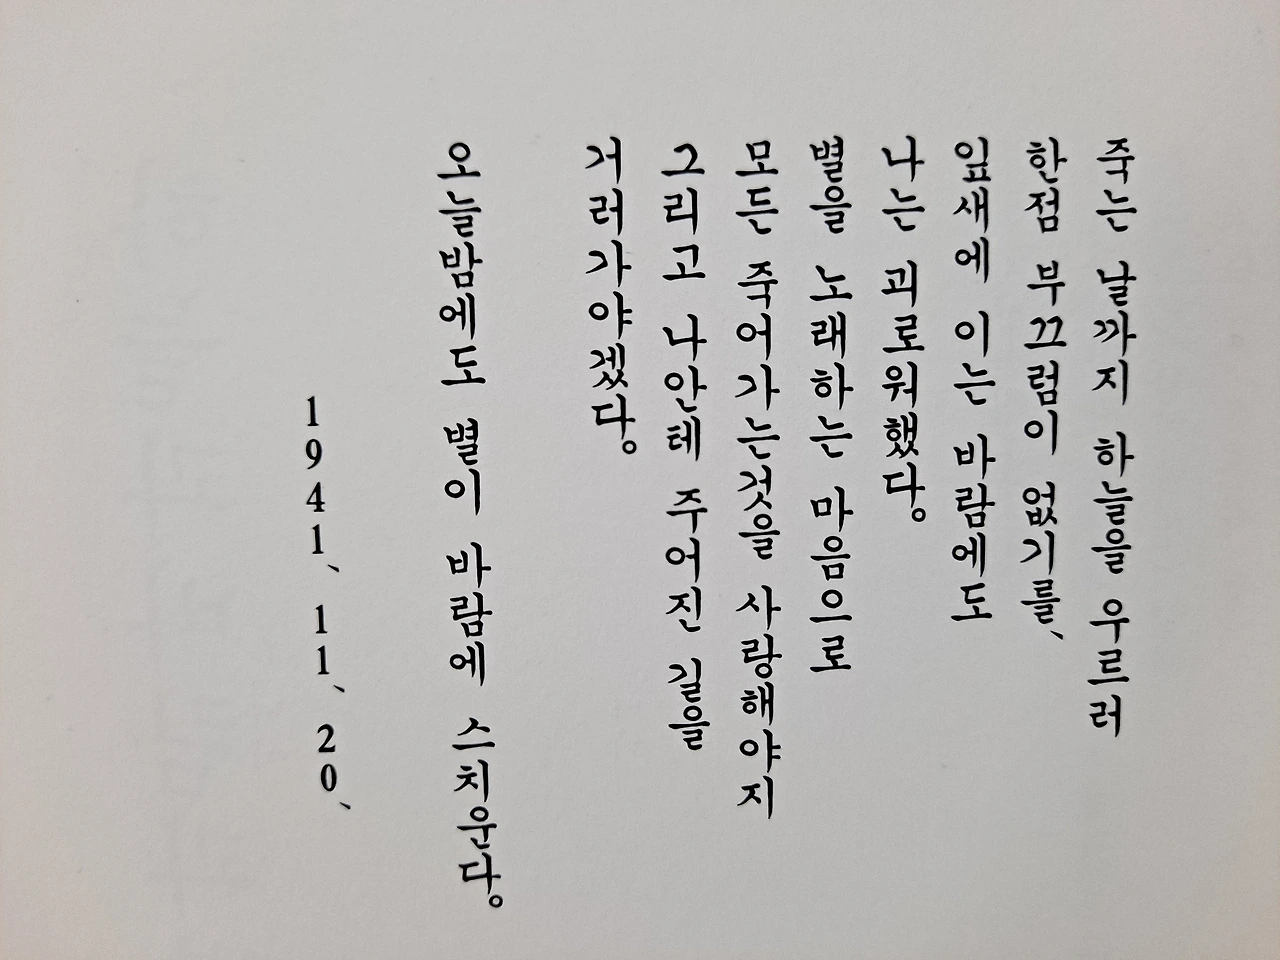 죽는 날까지 하늘을 우르러
한점 부끄럼이 없기를、
잎새에 이는 바람에도
나는 괴로워했다。
별을 노래하는 마음으로
모든 죽어가는것을 사랑해야지
그리고 나안테 주어진 길을
거러가야겠다。
오늘밤에도 별이 바람에 스치운다。
1941、11、20、